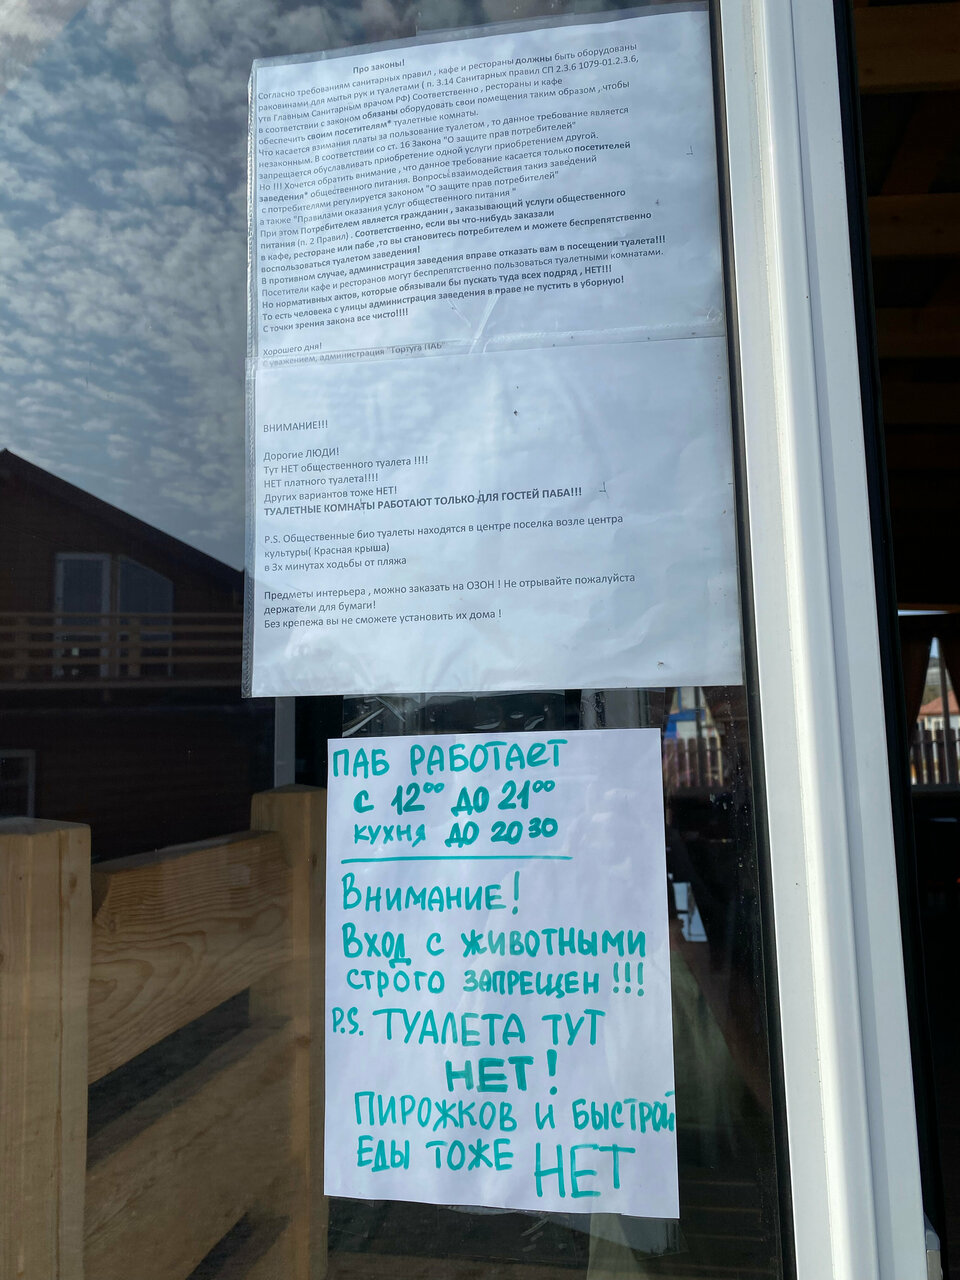 Про законы!
Согласно требованиям санитарных правил , кафе и рестораны должны быть оборудованы
раковинами для мытья рук и туалетами ( п. 3.14 Санитарных правил СП 2.3.6 1079-01.2.3.6,
утв Главным Санитарным врачом РФ) Соответственно , рестораны и кафе
в соответствии с законом обязаны оборудовать свои помещения таким образом , чтобы
обеспечить своим посетителям* туалетные комнаты.
Что касается взимания платы за пользование туалетом , то данное требование является
незаконным. В соответствии со ст. 16 Закона "О защите прав потребителей"
запрещается обуславливать приобретение одной услуги приобретением другой.
Но !!! Хочется обратить внимание , что данное требование касается только посетителей
заведения* общественного питания. Вопросы взаимодействия такиз заведений
с потребителями регулируется законом "О защите прав потребителей"
а также "Правилами оказания услуг общественного питания "
При этом Потребителем является гражданин , заказывающий услуги общественного
питания (п. 2 Правил) . Соответственно, если вы что-нибудь заказали
в кафе, ресторане или пабе ,то вы становитесь потребителем и можете беспрепятственно
воспользоваться туалетом заведения!
В противном случае, администрация заведения вправе отказать вам в посещении туалета!!!
Посетители кафе и ресторанов могут беспрепятственно пользоваться туалетными комнатами.
Но нормативных актов, которые обязывали бы пускать туда всех подряд , НЕТ!!!
То есть человека с улицы администрация заведения в праве не пустить в уборную!
С точки зрения закона все чисто!!!!
Хорошего дня!
С уважением, администрация "Тортуга ПАБ"
ВНИМАНИЕ!!!
Дорогие ЛЮДИ!
Тут НЕТ общественного туалета !!!!
НЕТ платного туалета!!!!
Других вариантов тоже НЕТ!
ТУАЛЕТНЫЕ КОМНАТЫ РАБОТАЮТ ТОЛЬКО ДЛЯ ГОСТЕЙ ПАБА!!!
P.S. Общественные био туалеты находятся в центре поселка возле центра
культуры( Красная крыша)
в 3х минутах ходьбы от пляжа
Предметы интерьера , можно заказать на ОЗОН ! Не отрывайте пожалуйста
держатели для бумаги!
Без крепежа вы не сможете установить их дома !
ПАБ РАБОТАЕТ
с 12⁰⁰ ДО 21⁰⁰
КУХНЯ ДО 20 30
Внимание!
Вход с животными
строго запрещен !!!
P.S. ТУАЛЕТА ТУТ
НЕТ!
ПИРОЖКОВ И БЫСТРОЙ
ЕДЫ ТОЖЕ НЕТ